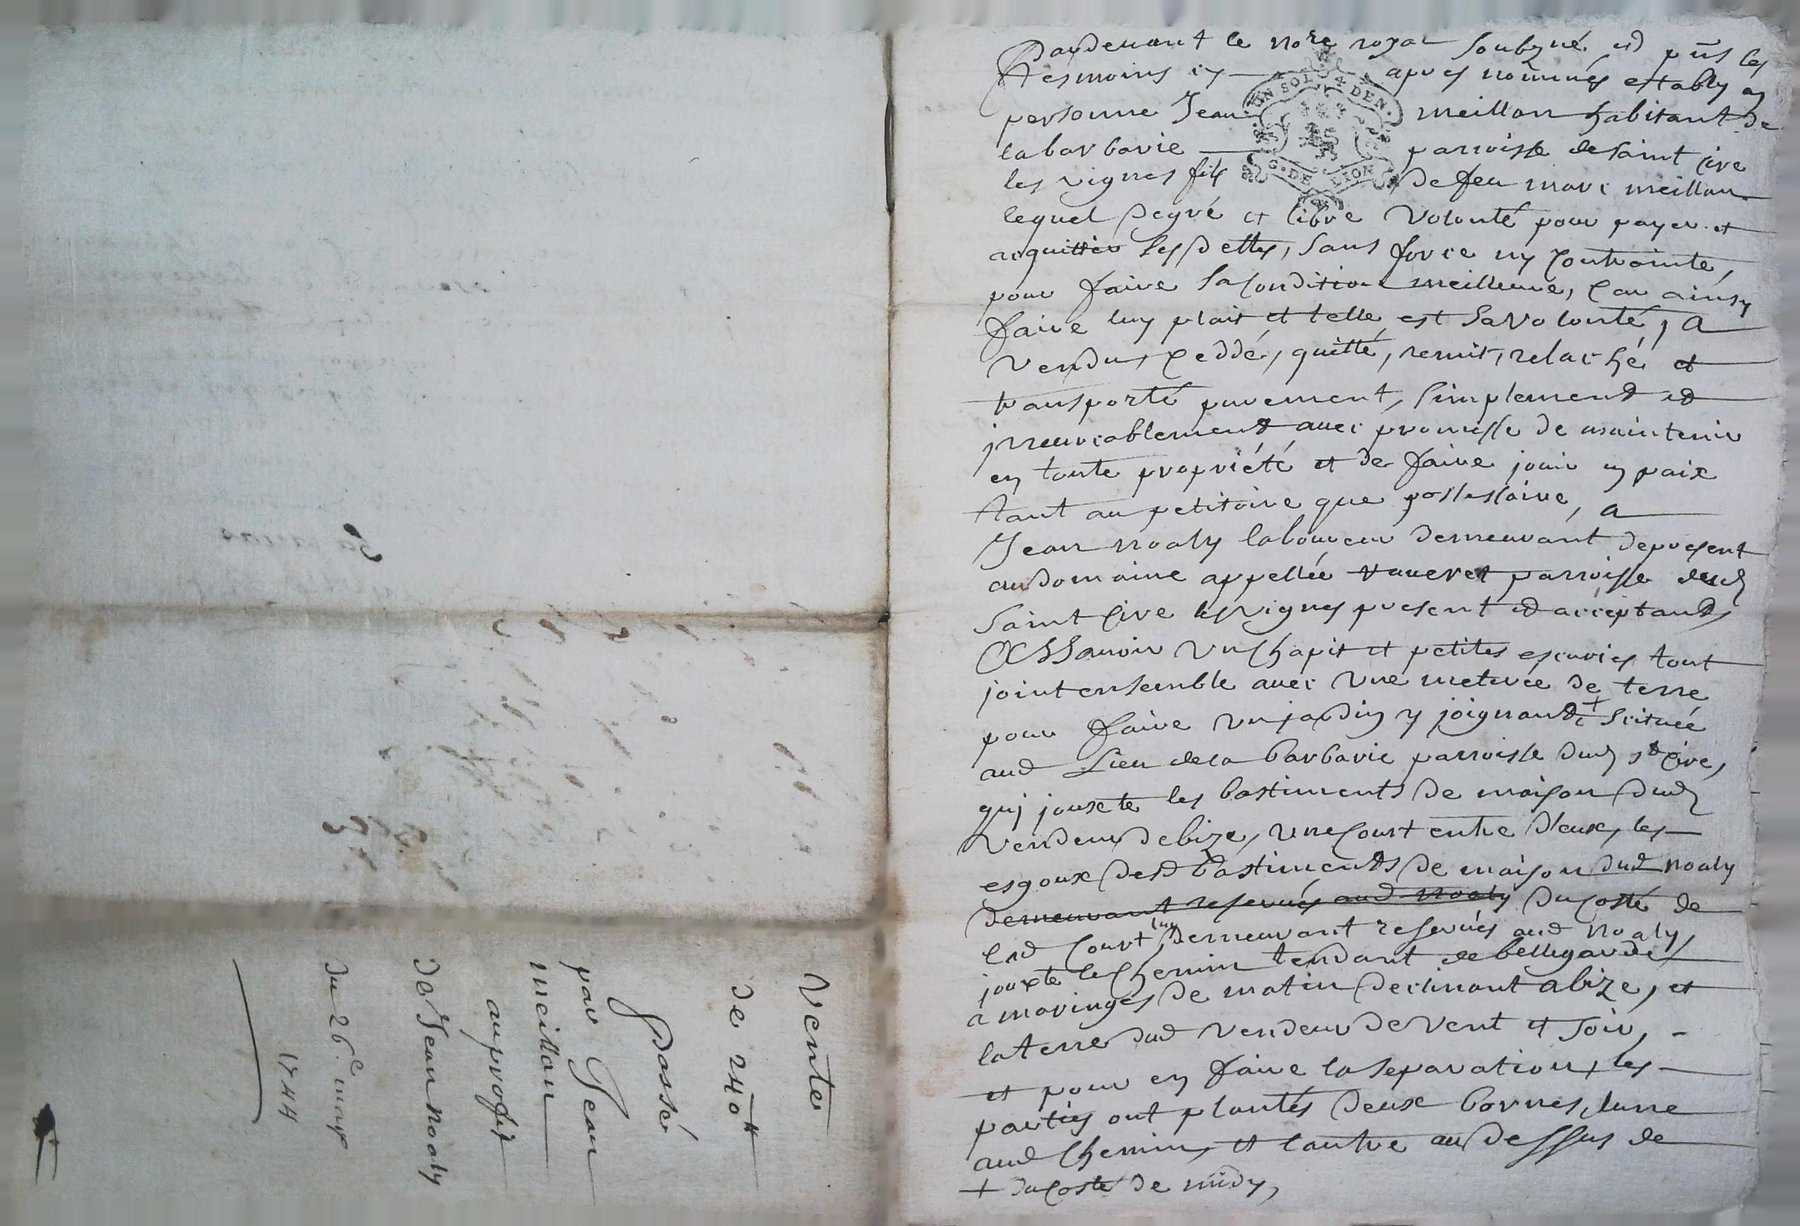 Pardevant le no.re royal soubzné et pñs les
tesmoins cy apres nommés estably en
personne Jean meillan habitant de
la barbarie parroisse de saint cire
les vignes filz de feu marc meillan
lequel de gré et libre volonté pour payer et
acquitter ses dettes, sans force ny contrainte,
pour faire sa condition meilleure, car ainsy
faire luy plait et telle est sa volonté, a
vendu, ceddé, quitté, remis, relaché et
transporté purement, simplement et
jrreuocablement auec promesse de maintenir
en toute propriété et de faire jouir en paix
tant au petitoire que possessoire, a
Jean noaly laboureur demeurant depresent
au domaine appellée vaueret parroisse dud
saint cire les vignes present et acceptant
Assauoir un chapit et petites escuries tout
joint ensemble auec une meterée de terre
pour faire un jardin y joignant + scituée
aud lieu de la barbarie parroisse dud st cire,
quj jouxte les bastiments de maison dud
vendeur de bize, une court entre d'eux, les
esgoux desd bastiments de maison dud noaly
demeurant reserués aud noaly du costé de
lad court luy demeurant reserués aud noaly,
jouxte le chemin tendant de bellegarde
a maringes de matin declinant a bize, et
la terre dud vendeur de vent et soir,
et pour en faire la separation, les
parties ont plantés deux bornes, lune
aud chemin, et l'autre au dessus de
+ du costé de midy,
Vente
de 240 ₶
passée
par Jean
meillan
au profit
de Jean noaly
du 26.e mars
1744
UN SOL 4 DEN.
G. DE LION